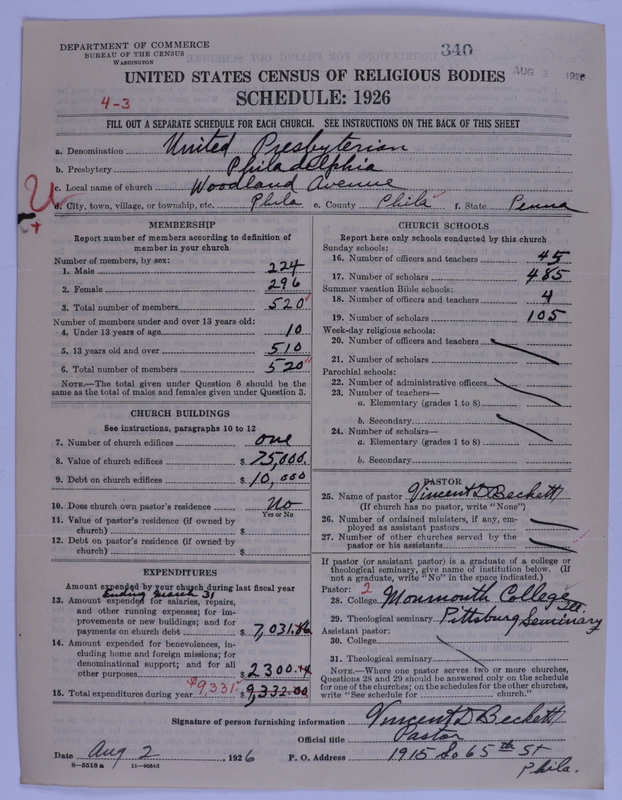 DEPARTMENT OF COMMERCE
BUREAU OF THE CENSUS
WASHINGTON
340
AUG 3 1926
UNITED STATES CENSUS OF RELIGIOUS BODIES
4-3
SCHEDULE: 1926
FILL OUT A SEPARATE SCHEDULE FOR EACH CHURCH. SEE INSTRUCTIONS ON THE BACK OF THIS SHEET
a. Denomination United Presbyterian
b. Presbytery Philadelphia
c. Local name of church Woodland Avenue
d. City, town, village, or township, etc. Phila e. County Phila f. State Penna
MEMBERSHIP
Report number of members according to definition of
member in your church
Number of members, by sex:
1. Male 224
2. Female 296
3. Total number of members 520
Number of members under and over 13 years old:
4. Under 13 years of age 10
5. 13 years old and over 510
6. Total number of members 520
NOTE.—The total given under Question 6 should be the
same as the total of males and females given under Question 3.
CHURCH BUILDINGS
See instructions, paragraphs 10 to 12
7. Number of church edifices one
8. Value of church edifices $ 75,000.
9. Debt on church edifices $ 10,000
10. Does church own pastor's residence No
Yes or No
11. Value of pastor's residence (if owned by
church) $
12. Debt on pastor's residence (if owned by
church) $
EXPENDITURES
Amount expended by your church during last fiscal year
Ending March 31
13. Amount expended for salaries, repairs,
and other running expenses; for im-
provements or new buildings; and for
payments on church debt $ 7,031.
14. Amount expended for benevolences, in-
cluding home and foreign missions; for
denominational support; and for all
other purposes 2300.
$9,331
15. Total expenditures during year $ 9,332.00
CHURCH SCHOOLS
Report here only schools conducted by this church
Sunday schools:
16. Number of officers and teachers 45
17. Number of scholars 485
Summer vacation Bible schools:
18. Number of officers and teachers 4
19. Number of scholars 105
Week-day religious schools:
20. Number of officers and teachers
21. Number of scholars
Parochial schools:
22. Number of administrative officers
23. Number of teachers—
a. Elementary (grades 1 to 8)
b. Secondary
24. Number of scholars—
a. Elementary (grades 1 to 8)
b. Secondary
PASTOR
25. Name of pastor Vincent D Beckett
(If church has no pastor, write "None")
26. Number of ordained ministers, if any, em-
ployed as assistant pastors
27. Number of other churches served by the
pastor or his assistants
If pastor (or assistant pastor) is a graduate of a college or
theological seminary, give name of institution below. (If
not a graduate, write "No" in the space indicated.)
Pastor: 2
28. College Monmouth College Ill.
29. Theological seminary Pittsburg Seminary
Assistant pastor:
30. College
31. Theological seminary
NOTE.—Where one pastor serves two or more churches,
Questions 28 and 29 should be answered only on the schedule
for one of the churches; on the schedules for the other churches,
write "See schedule for church."
Signature of person furnishing information Vincent D Beckett
Official title Pastor
Date Aug 2, 1926 P. O. Address 1915 So 65th St
Phila.